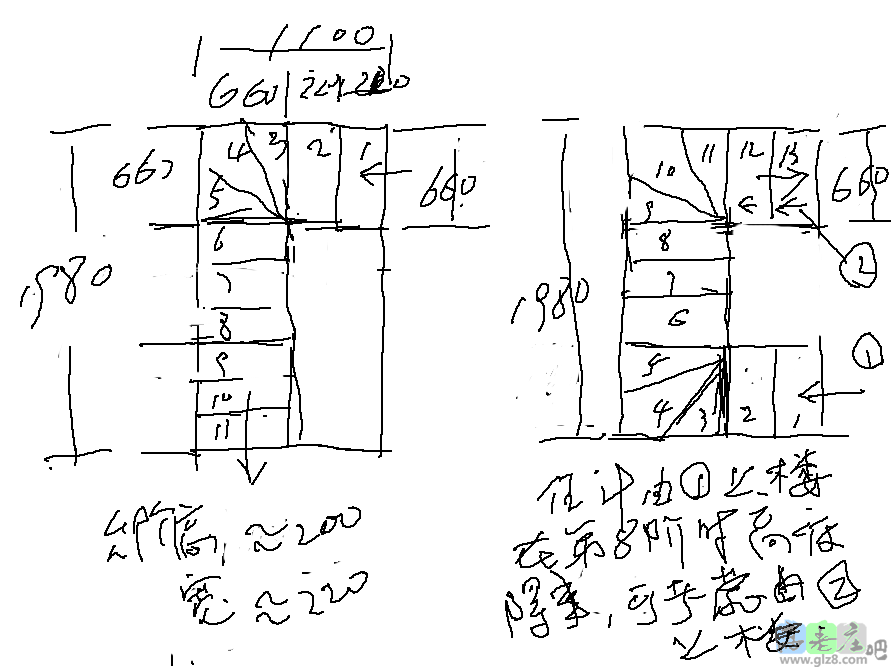 1100
660 220 220
660 4 3 2 1 660
5
6
1980 7
8
9
10
11
阶高,≈200
宽≈220
10 11 12 13 660
9
8 ②
1980 7
6
5 ①
4 3 2 1
估计由①上楼
在第8阶时高低
障碍,可考虑由②
上楼
吧
www.glz8.com